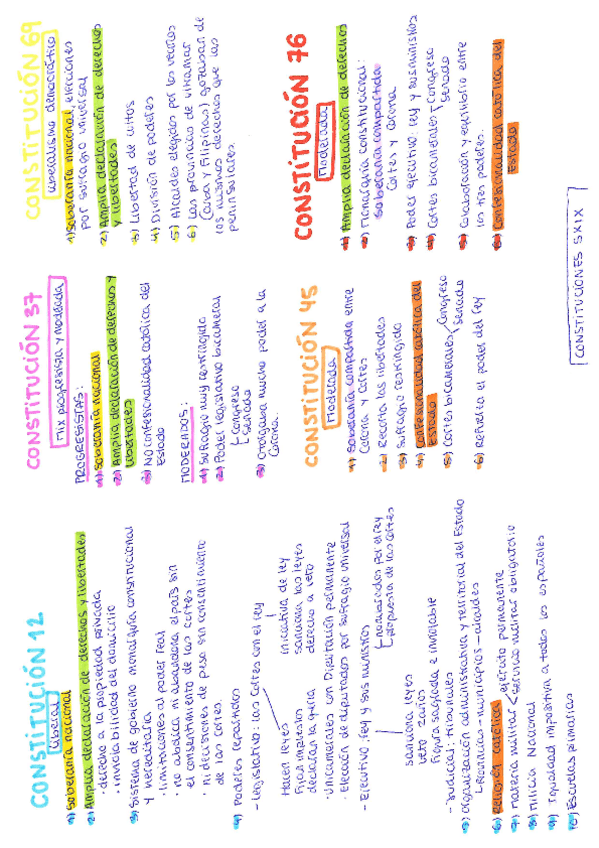 CONSTITUCIÓN 12
Liberal
1) Soberanía nacional
2) Amplia declaración de derechos y libertades
· derecho a la propiedad privada
· inviolabilidad del domicilio
3) Sistema de gobierno monarquía constitucional
y hereditaria
· limitaciones al poder real
· no abdica ni abandona el país sin
el consentimiento de las cortes
· ni decisiones de peso sin consentimiento
de las cortes
4) Poderes repartidos
- Legislativo: las cortes con el rey
Hacen leyes
Fijan impuestos
declaran la guerra
iniciativa de ley
sanciona las leyes
derecho a veto
· Unicamerales con Diputación permanente
· Elección de diputados por sufragio universal
- Ejecutivo, rey y sus ministros
sanciona leyes
veto 2 años
Figura sagrada e inviolable
nombrados por el rey
propuesta de las cortes
- Judicial: tribunales
5) Organización administrativa y territorial del Estado
↳ Provincias - municipios - alcaldes
6) Religión católica
7) materia militar
ejército permanente
servicio militar obligatorio
8) Milicia Nacional
9) Igualdad impositiva a todos los españoles
10) Escuelas primarias
CONSTITUCIÓN 37
Mix progresista y moderada
PROGRESISTAS:
1) Soberanía nacional
2) Amplia declaración de derechos y
libertades
3) NO confesionalidad católica del
Estado
MODERADOS:
1) Sufragio muy restringido
2) Poder legislativo bicameral
↳ Congreso
↳ Senado
3) Otorgaba mucho poder a la
Corona.
CONSTITUCIÓN 45
Moderada
1) Soberanía compartida entre
Corona y Cortes
2) Recorta las libertades
3) Sufragio restringido
4) Confesionalidad católica del
Estado
5) Cortes bicamerales
Congreso
Senado
6) Refuerza el poder del rey
CONSTITUCIÓN 69
Liberalismo democrático
1) Soberanía nacional, elecciones
por sufragio universal
2) Amplia declaración de derechos
y libertades
3) Libertad de cultos
4) División de poderes
5) Alcaldes elegidos por los vecinos
6) Las provincias de ultramar
(Cuba y Filipinas) gozaban de
los mismos derechos que los
peninsulares.
CONSTITUCIÓN 76
Moderada
1) Amplia declaración de derechos
2) Monarquía constitucional:
soberanía compartida:
Cortes y Corona
3) Poder ejecutivo: rey y sus ministros
4) Cortes bicamerales - Congreso
Senado
5) Colaboración y equilibrio entre
los tres poderes.
6) Confesionalidad católica del
Estado
CONSTITUCIONES SXIX